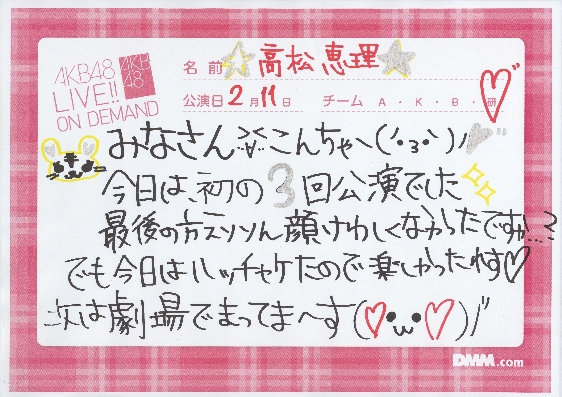 AKB48
LIVE!!
ON DEMAND
AKB
48
名前 ☆高松恵理☆
公演日 2月11日 チーム A・K・B・研
みなさん こんちゃ〜(´・з・`)ノ
今日は、初の3回公演でした
最後の方ヌソソん顔けわしくなかったですか…?
でも今日はハッチャケたので楽しかったれす♡
次は劇場でまってま〜す(♡・ω・♡)ノ
DMM.com